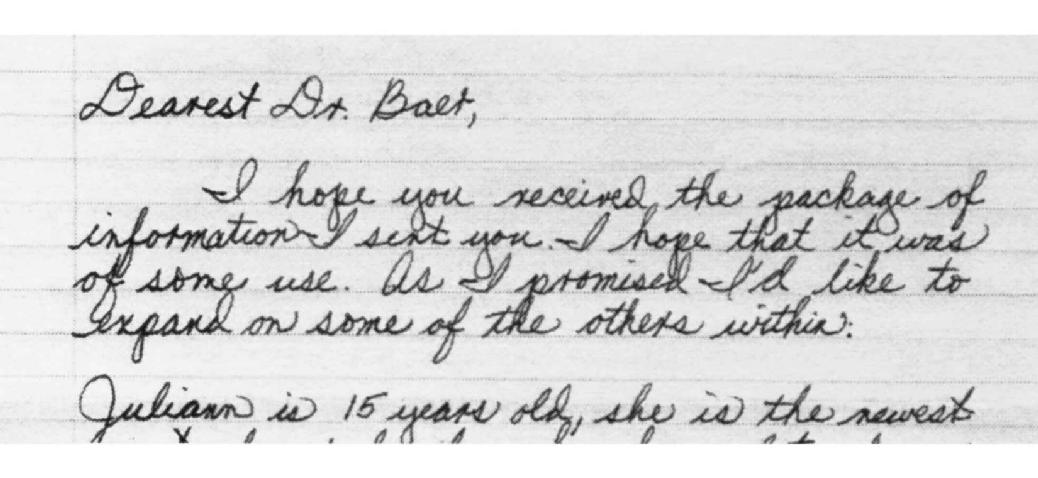 Dearest Dr. Baer,
I hope you received the package of
information I sent you. I hope that it was
of some use. As I promised I'd like to
expand on some of the others within:
Juliann is 15 years old, she is the newest